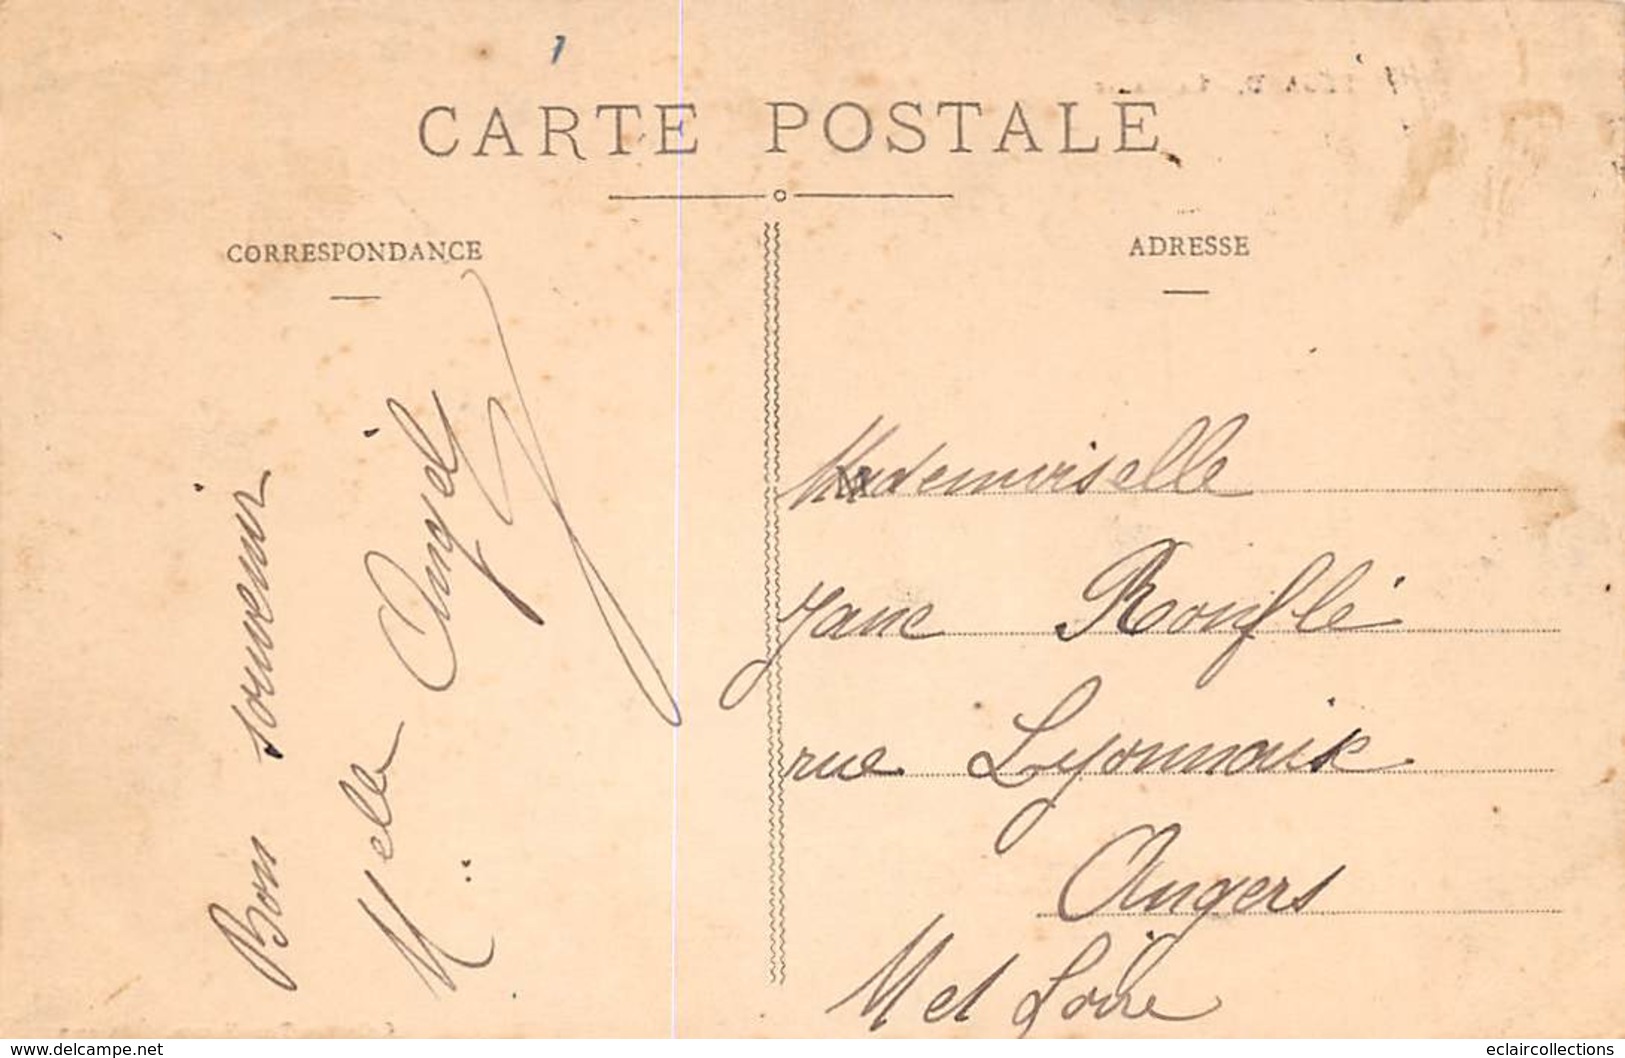 CARTE POSTALE
CORRESPONDANCE
ADRESSE
Bon souvenir
Melle Angèle
Mademoiselle
Jane Rouflé
rue Lyonnaise
Angers
M et Loire
www.delcampe.net
eclaircollections